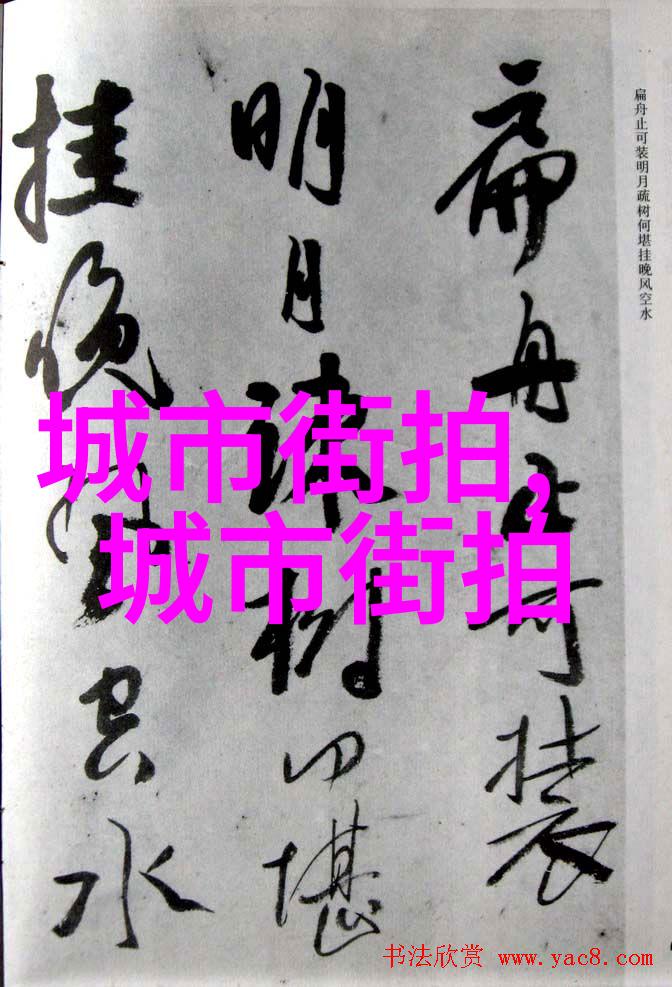 扁舟止可装明月疏树何堪挂晚风空水
扁舟止可裝
明月疎樹何堪
挂晚風空水
城市街拍,
城市街拍
书法欣赏 www.yac8.com